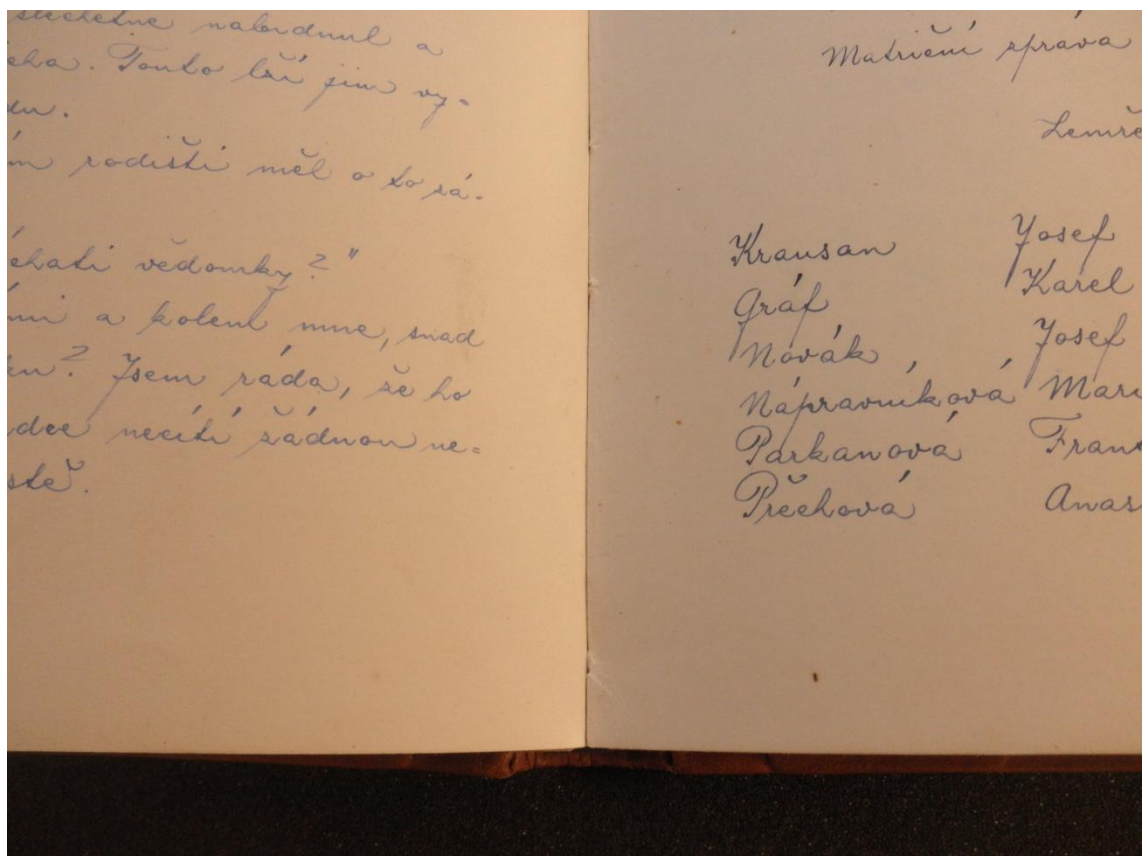 šlechetně nabídnul a
cha. Touto lží jim vy-
du.
ím rodišti měl o to zá-
échati vědomky?"
ími a kolem mne, snad
ku? Jsem ráda, že ho
dce necítí žádnou ne-
stě.
Matriční zpráva
Zemře
Krausan Josef
Gráf Karel
Novák Josef
Nápravníková Mari
Parkanová Frant
Přechová Anas